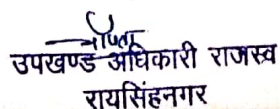 उपखण्ड अधिकारी राजस्व
रायसिंहनगर